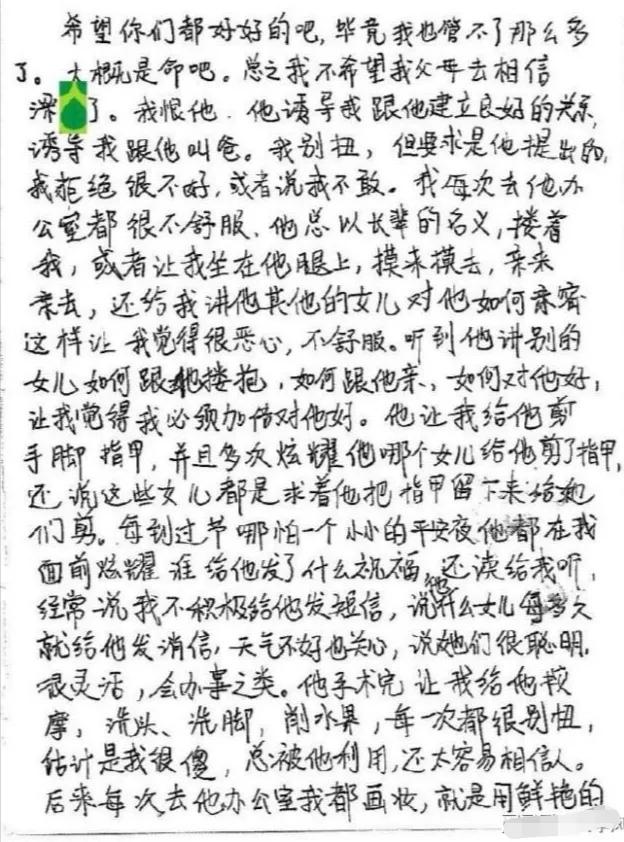 希望你们都好好的吧,毕竟我也管不了那么多
了。大概是命吧。总之我不希望我父母去相信
梁 了。我恨他.他诱导我跟他建立良好的关系,
诱导我跟他叫爸。我别扭,但要求是他提出的,
我拒绝很不好,或者说我不敢。我每次去他办
公室都很不舒服、他总以长辈的名义,搂着
我,或者让我坐在他腿上,摸来摸去,亲来
亲去,还给我讲他其他的女儿对他如何亲密
这样让我觉得很恶心,不舒服。听到他讲别的
女儿如何跟他搂抱,如何跟他亲、如何对他好,
让我觉得我必须加倍对他好。他让我给他剪
手脚指甲,并且多次炫耀他哪个女儿给他剪了指甲,
还说这些女儿都是求着他把指甲留下来给她
们剪。每到过节哪怕一个小小的平安夜他都在我
面前炫耀谁给他发了什么祝福,他还读给我听,
经常说我不积极给他发短信,说什么女儿每多久
就给他发消信,天气不好也关心,说她们很聪明,
很灵活,会办事之类。他手术完让我给他按
摩,洗头、洗脚,削水果,每一次都很别扭,
估计是我很傻,总被他利用,还太容易相信人。
后来每次去他办公室我都画妆,就是用鲜艳的